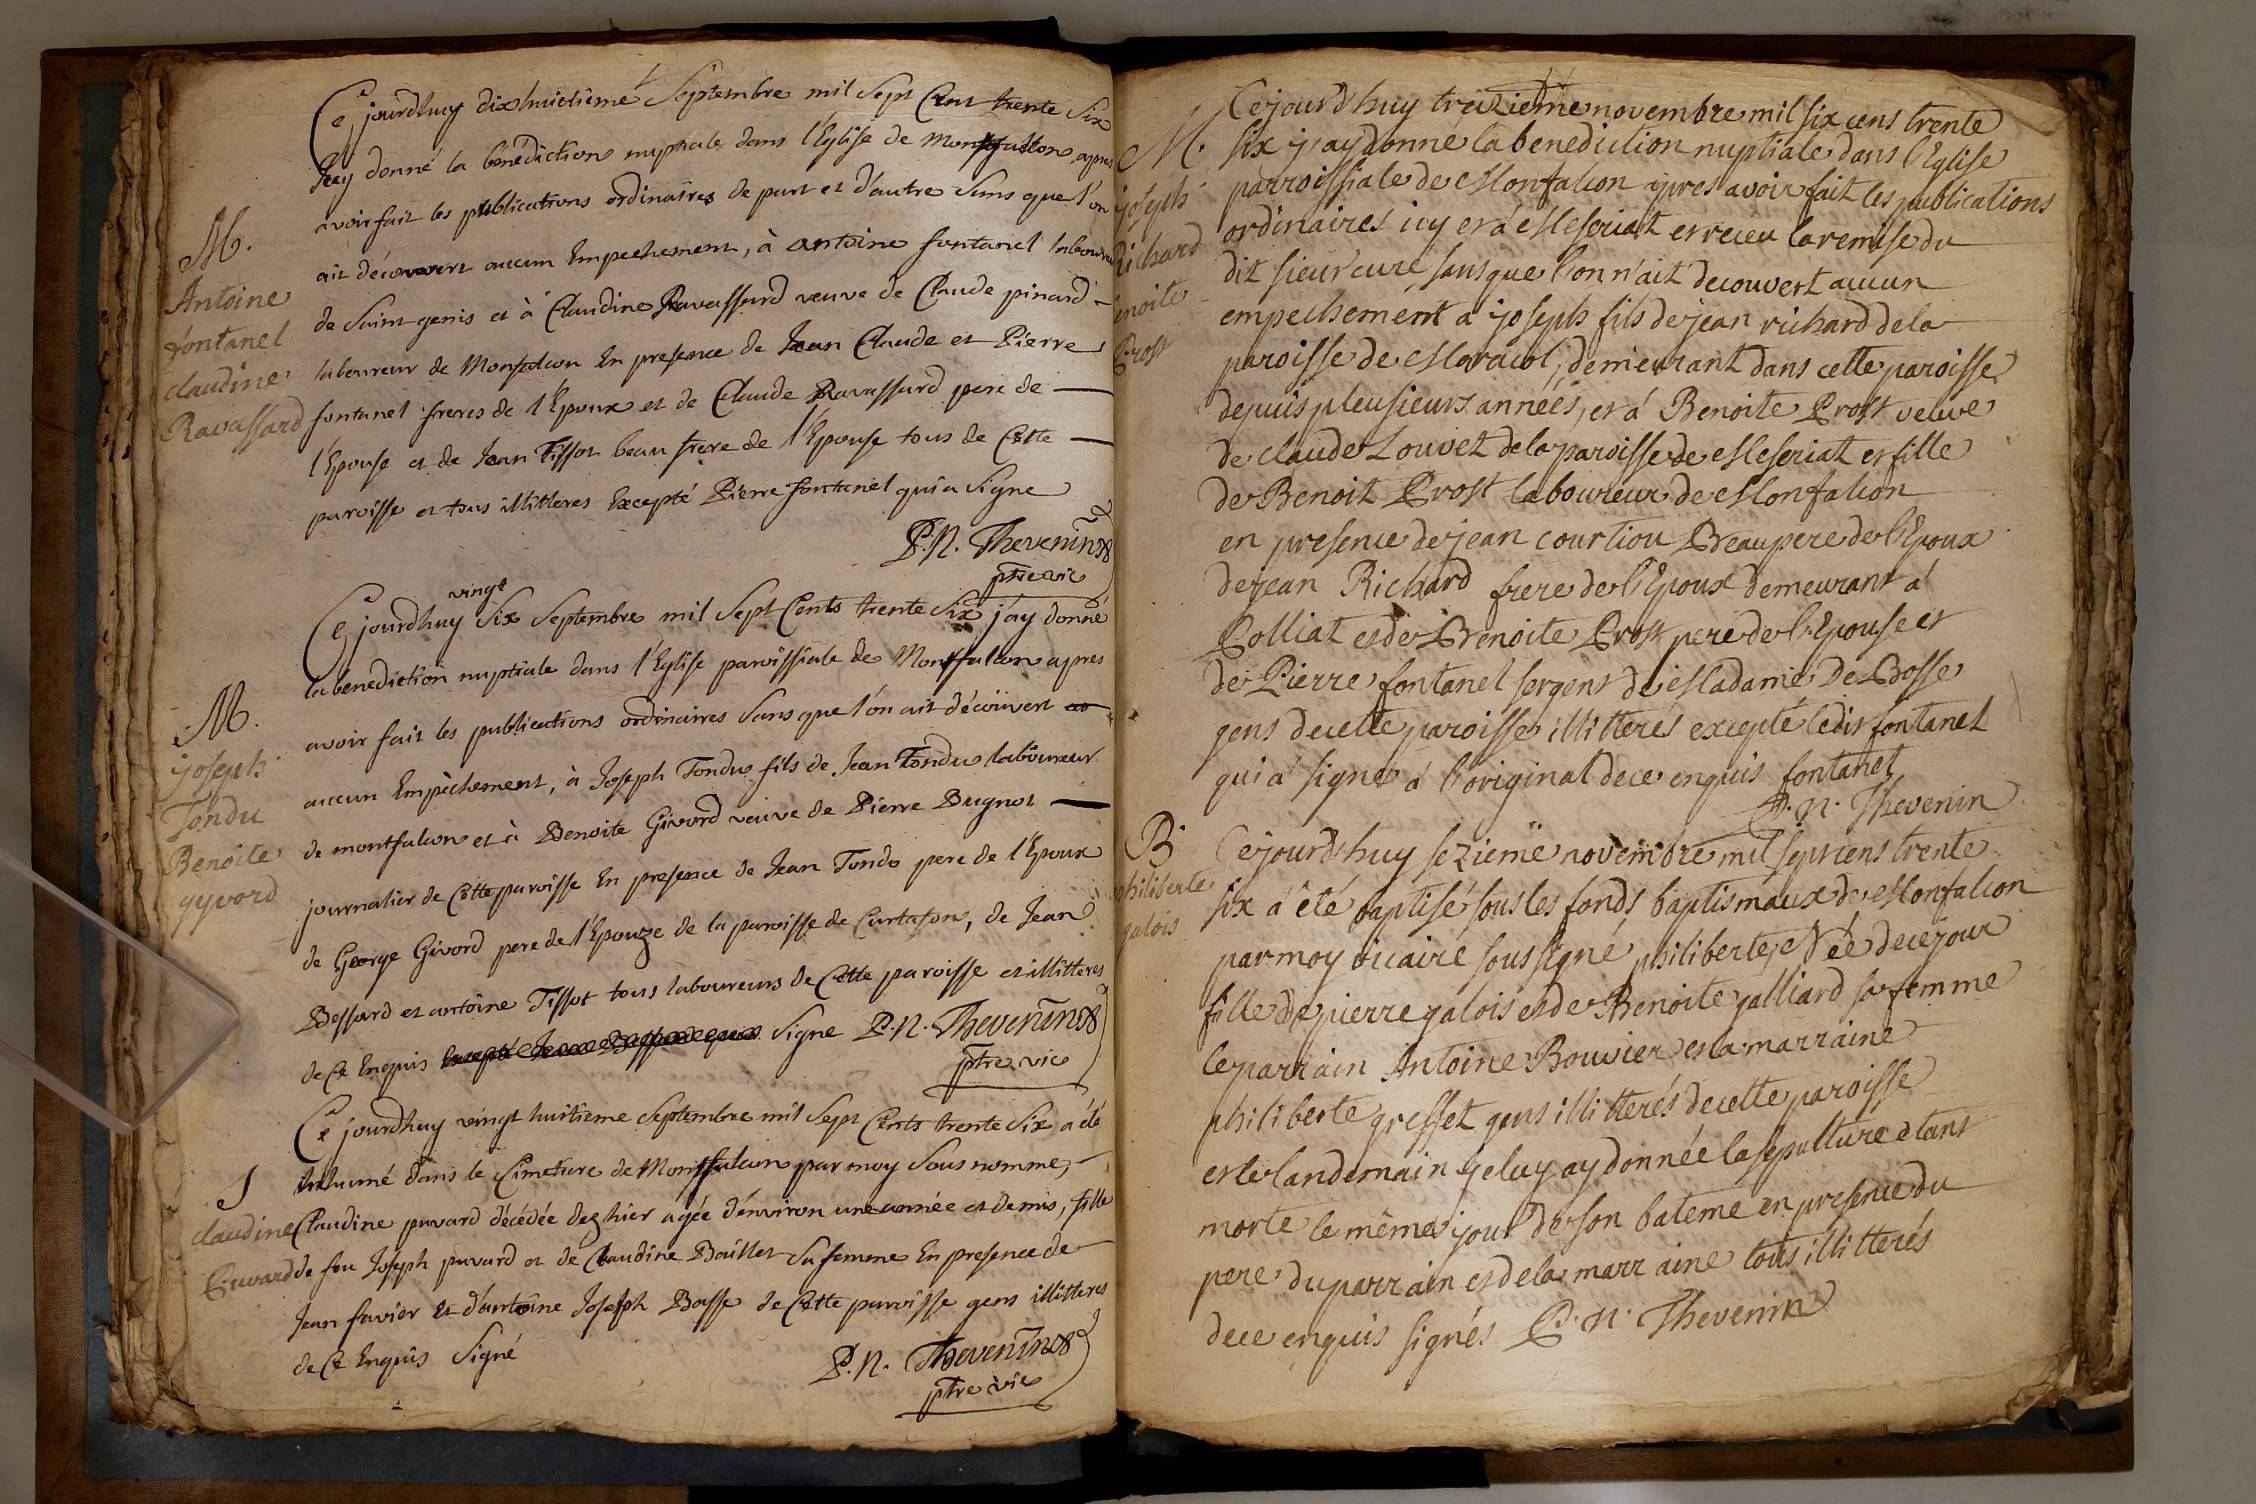 Ce jourdhuy dixhuictieme Septembre mil Sept Cent trente Six
Jay donné la bénédiction nuptiale dans l'Eglise de Montfalcon apres
avoir fait les publications ordinaires de part et d'autre Sans que l'on
ait découvert aucun Empechement, à antoine fontanel laboureur
de Saint genis et à Claudine Ravassard veuve de Claude pinard
laboureur de Monfalcon En presence de Jean Claude et Pierre
fontanel freres de l'Epoux et de Claude Ravassard pere de
l'Epouse et de Jean Tissot beau frere de l'Epouse tous de Cette
paroisse et tous illitteres Excepté Pierre fontanel qui a Signe
P. N. Thevenin
ptre vic
M.
Antoine
fontanel
claudine
Ravassard
Ce jourdhuy vingt Six Septembre mil Sept Cents trente Six j'ay donné
la benediction nuptiale dans l'Eglise paroissiale de Montfalcon apres
avoir fait les publications ordinaires Sans que l'ón ait découvert
aucun Empèchement, à Joseph Tondu fils de Jean Tondu laboureur
de montfalcon et à Benoite Givord veuve de Pierre Bugnot
journalier de Cette paroisse En presence de Jean Tondo pere de l'Epoux
de George Givord pere de l'Epouze de la paroisse de Curtafon, de Jean
Bessard et antoine Tissot tous laboureurs de Cette paroisse et illitteres
de Ce Enquis Signe P. N. Thevenin
ptre vic
M.
joseph
Tondu
Benoite
gyvord
Ce jourdhuy vingt huitieme Septembre mil Sept Cents trente Six a été
Inhumé dans le Cimetiere de Montfalcon par moy Sousnomme,
Claudine puvard décédée dez hier agée d'environ une année et demis, fille
de feu Joseph puvard et de Claudine Baillet Sa femme En presence de
Jean favier Et d'antoine Joseph Basse de Cette paroisse gens illitteres
de Ce Enquis Signé
P. N. Thevenin
ptre vic
J
claudine
Puvard
Cejourd'huy treizieme novembre mil six cens trente
six j'ay donne la benediction nuptiale dans l'Eglise
parroissiale de Monfalcon apres avoir fait les publications
ordinaires icy et á Meseriat et receu la remise du
dit sieur curé sans que l'on n'ait decouvert aucun
empechement a joseph fils de jean richard de la
paroisse de Maraiol, demeurant dans cette paroisse
depuis pleusieurs années, et á Benoite Prost veuve
de claude Louvet de la paroisse de Meseriat et fille
de Benoit Prost laboureur de Monfalcon
en presence de jean courtiou Beaupere de l'Epoux
de jean Richard frere de l'Epoux demeurant á
Polliat et de Benoite Prost pere de l'Epouse et
de Pierre fontanel sergent de Madame De Bosse
gens de cette paroisse illitterés excepté ledit fontanel
qui á signé á l'original de ce enquis fontanel
P. N. Thevenin
M.
joseph
Richard
Benoite
Prost
Cejourd'huy sezieme novembre mil sept cens trente
six á été baptisé sous les fonds baptismaux de Monfalcon
par moy vicaire soussigné philiberte Née de ce jour
fille de pierre galois et de Benoite galliard sa femme
le parrain Antoine Bouvier et la marraine
philiberte gresset gens illitterés de cette paroisse
et le landemain je luy ay donnée la sepulture étant
morte le même jour de son bateme en presence du
pere du parrain et de la marraine tous illitterés
de ce enquis signés P. N. Thevenin
B
philiberte
galois